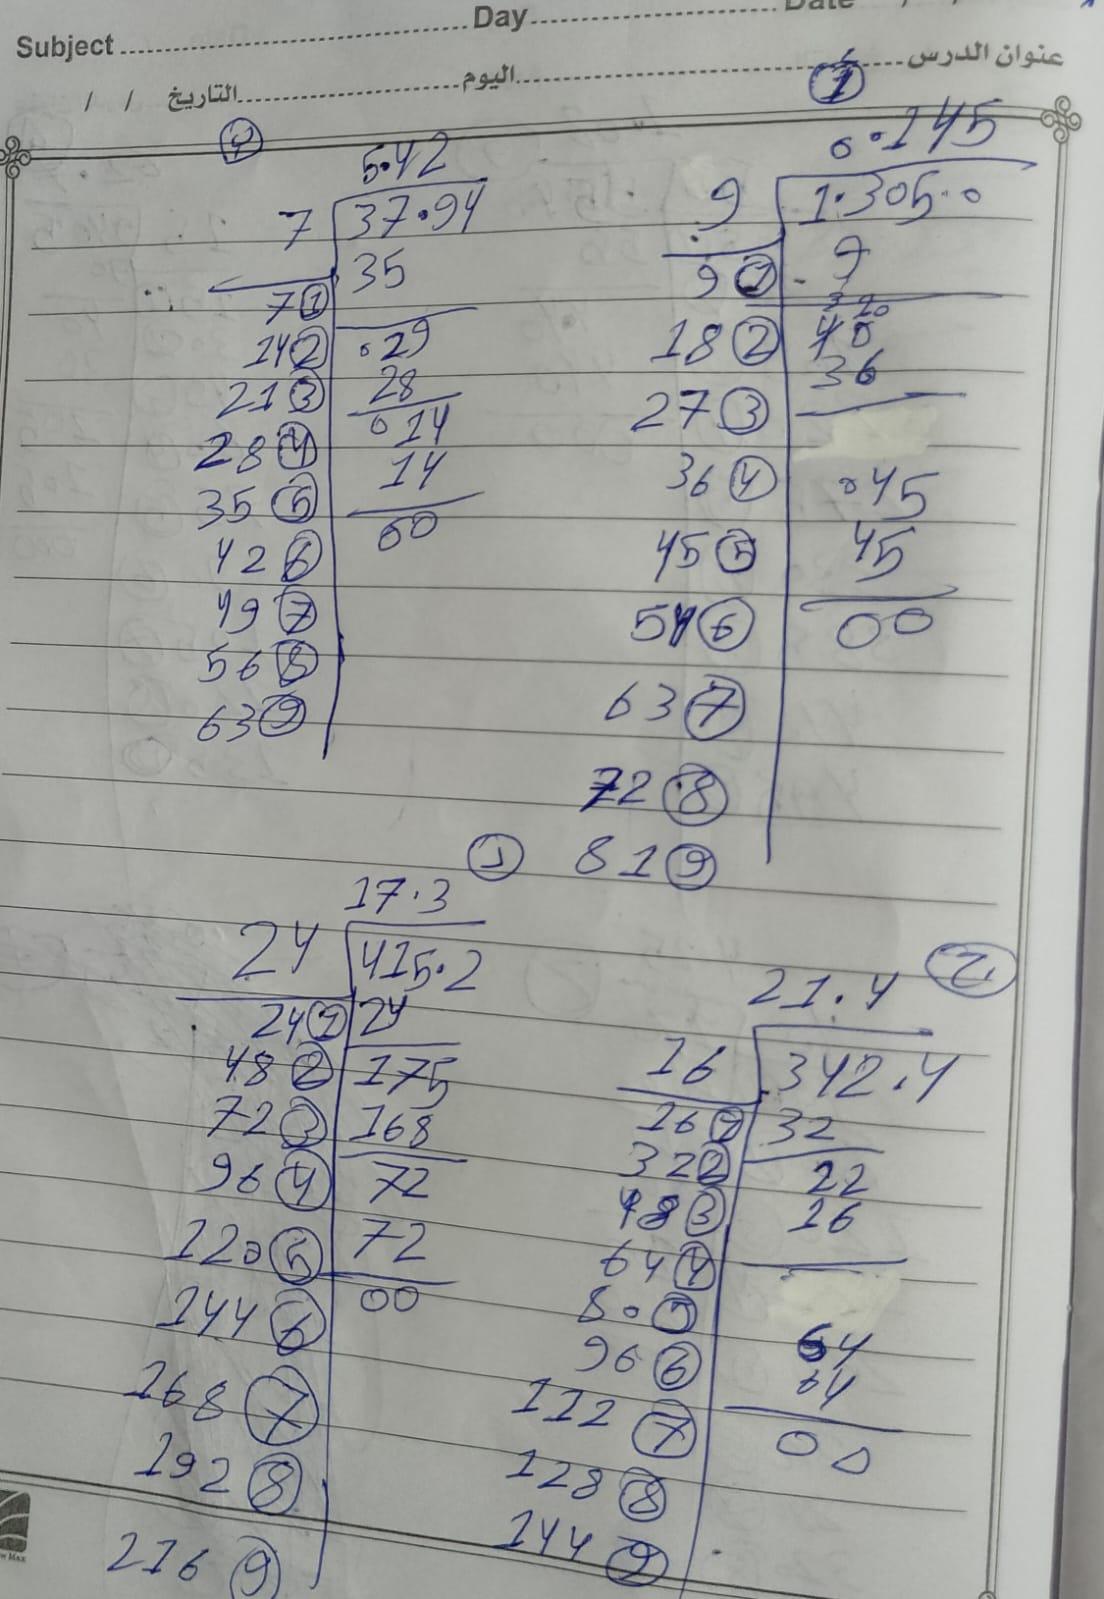 Subject
Day
Date
عنوان الدرس
اليوم
التاريخ / /
1
0.145
9 1.305.0
9 1 - 9
18 2 40
36
27 3
36 4 045
45 5 45
54 6 00
63 7
72 8
81 9
4
5.42
7 37.94
35
7 1
14 2 029
21 3 28
28 4 014
35 5 14
42 6 00
49 7
56 8
63 9
1
17.3
24 415.2
24 1 24
48 2 175
72 3 168
96 4 72
120 5 72
144 6 00
168 7
192 8
216 9
2
21.4
16 342.4
16 1 32
32 2 22
48 3 16
64 4
80 5
96 6 64
112 7 64
128 8 00
144 9